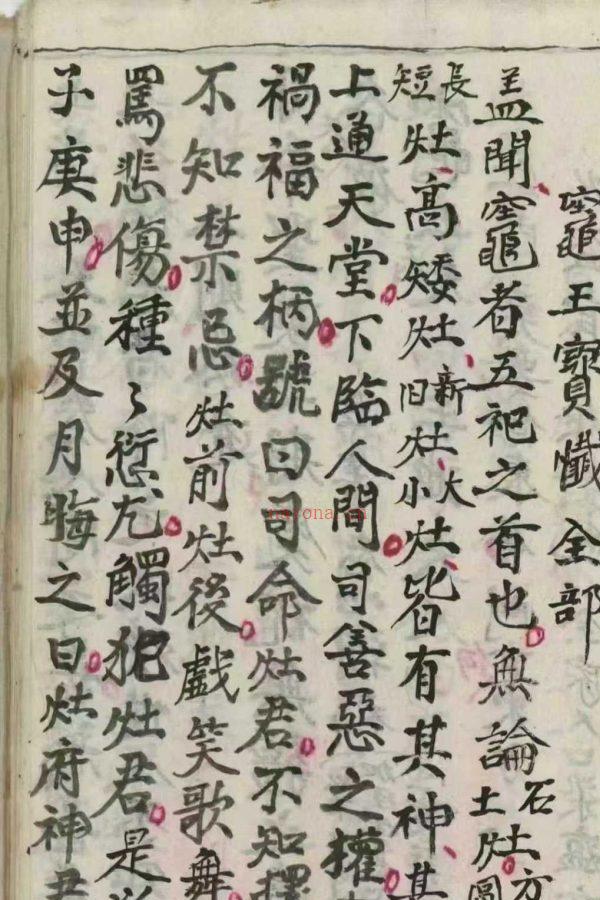 竈王寳懺全部
盖聞竈者五祀之首也無論石土灶方圓
長短灶高矮灶新旧灶大小灶皆有其神其
上通天堂下臨人間司善惡之權
禍福之柄號曰司命灶君不知擇
不知禁忌灶前灶後戲笑歌舞
罵悲傷種々愆尤觸犯灶君是
子庚申並及月晦之日灶府神君
nayona.cn